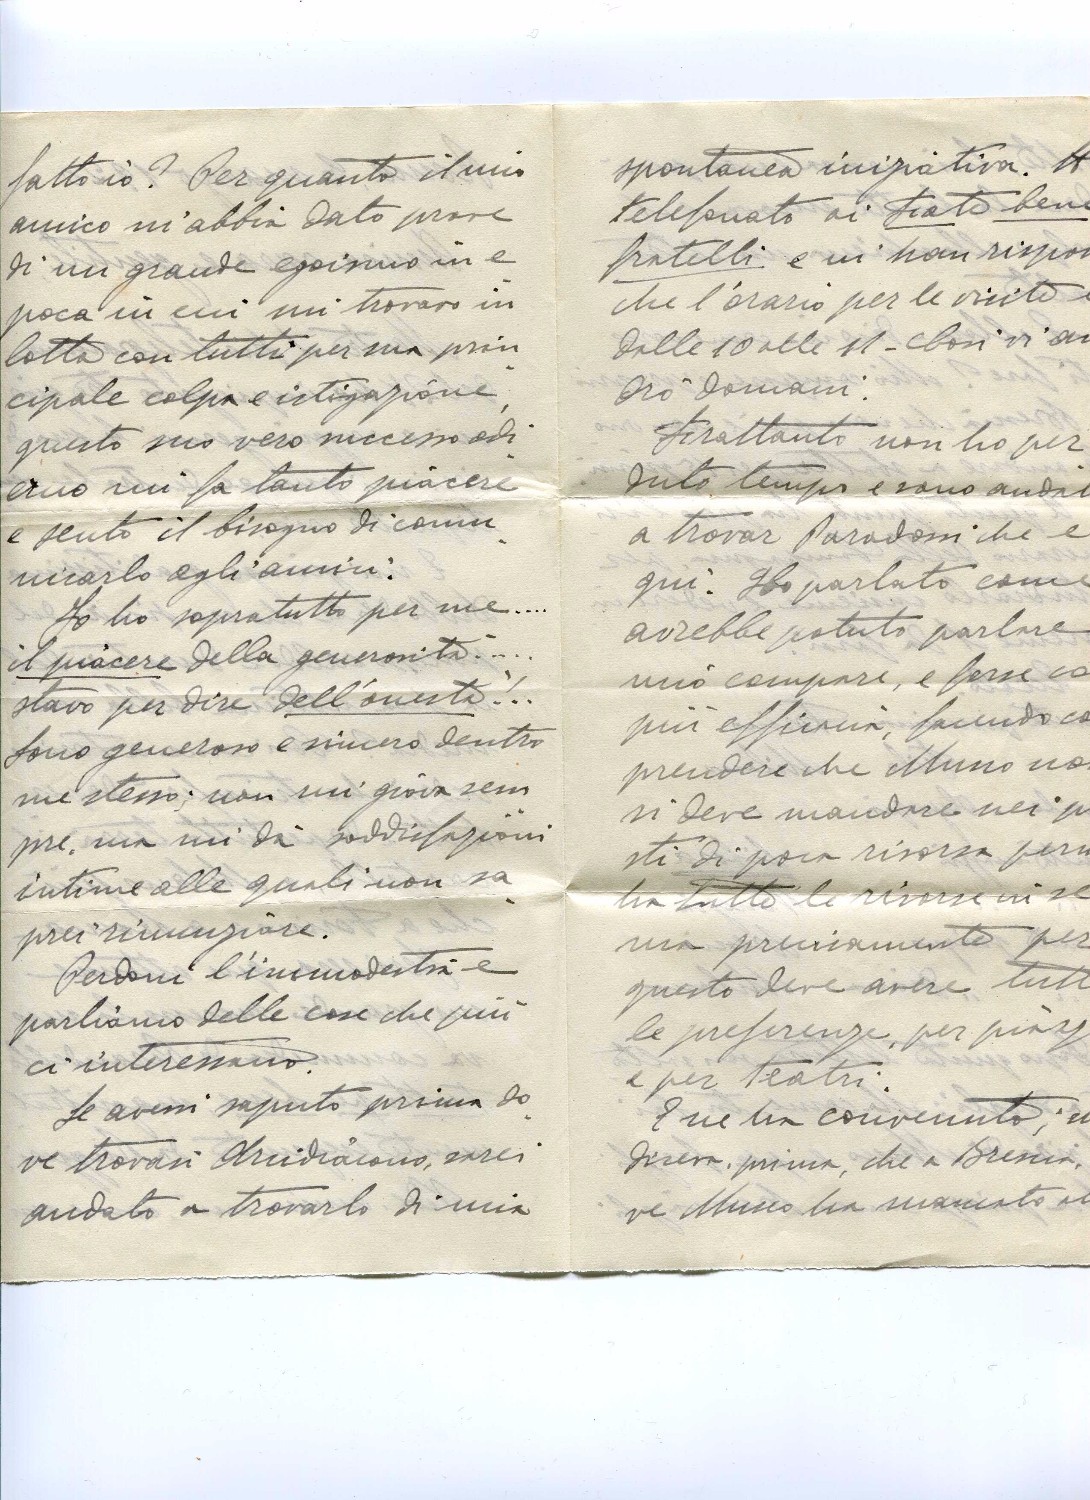 fatto io? Per quanto il mio
amico m'abbia dato prove
di un grande egoismo in e
poca in cui mi trovavo in
lotta con tutti per sua prin
cipale colpa e istigazione,
questo suo vero successo odi
erno mi fa tanto piacere
e sento il bisogno di comu
nicarlo agli amici.
Io ho sopratutto per me....
il piacere della generosità.....
stavo per dire dell'onestà!..
Sono generoso e sincero dentro
me stesso; non mi giova sem
pre, ma mi dà soddisfazioni
intime alle quali non sa
prei rinunziare.
Perdoni l'immodestia e
parliamo delle cose che più
ci interessano.
Se avessi saputo prima do
ve trovasi Arcidiacono, sarei
andato a trovarlo di mia
spontanea iniziativa. H
telefonato ai Fate bene
fratelli e mi han rispos
che l'orario per le visite
dalle 10 alle 11 - Così vi an
drò domani.
Frattanto non ho per
duto tempo e sono andat
a trovar Paradossi che e
qui. Ho parlato come
avrebbe potuto parlare
mio compare, e forse co
più efficacia, facendo co
prendere che Musco non
si deve mandare nei po
sti di poca risorsa perc
ha tutte le risorse in se
ma precisamente per
questo deve avere tutt
le preferenze, per piazz
e per teatri.
E ne ha convenuto,
diceva, prima, che a Brescia,
ve Musco ha mancato